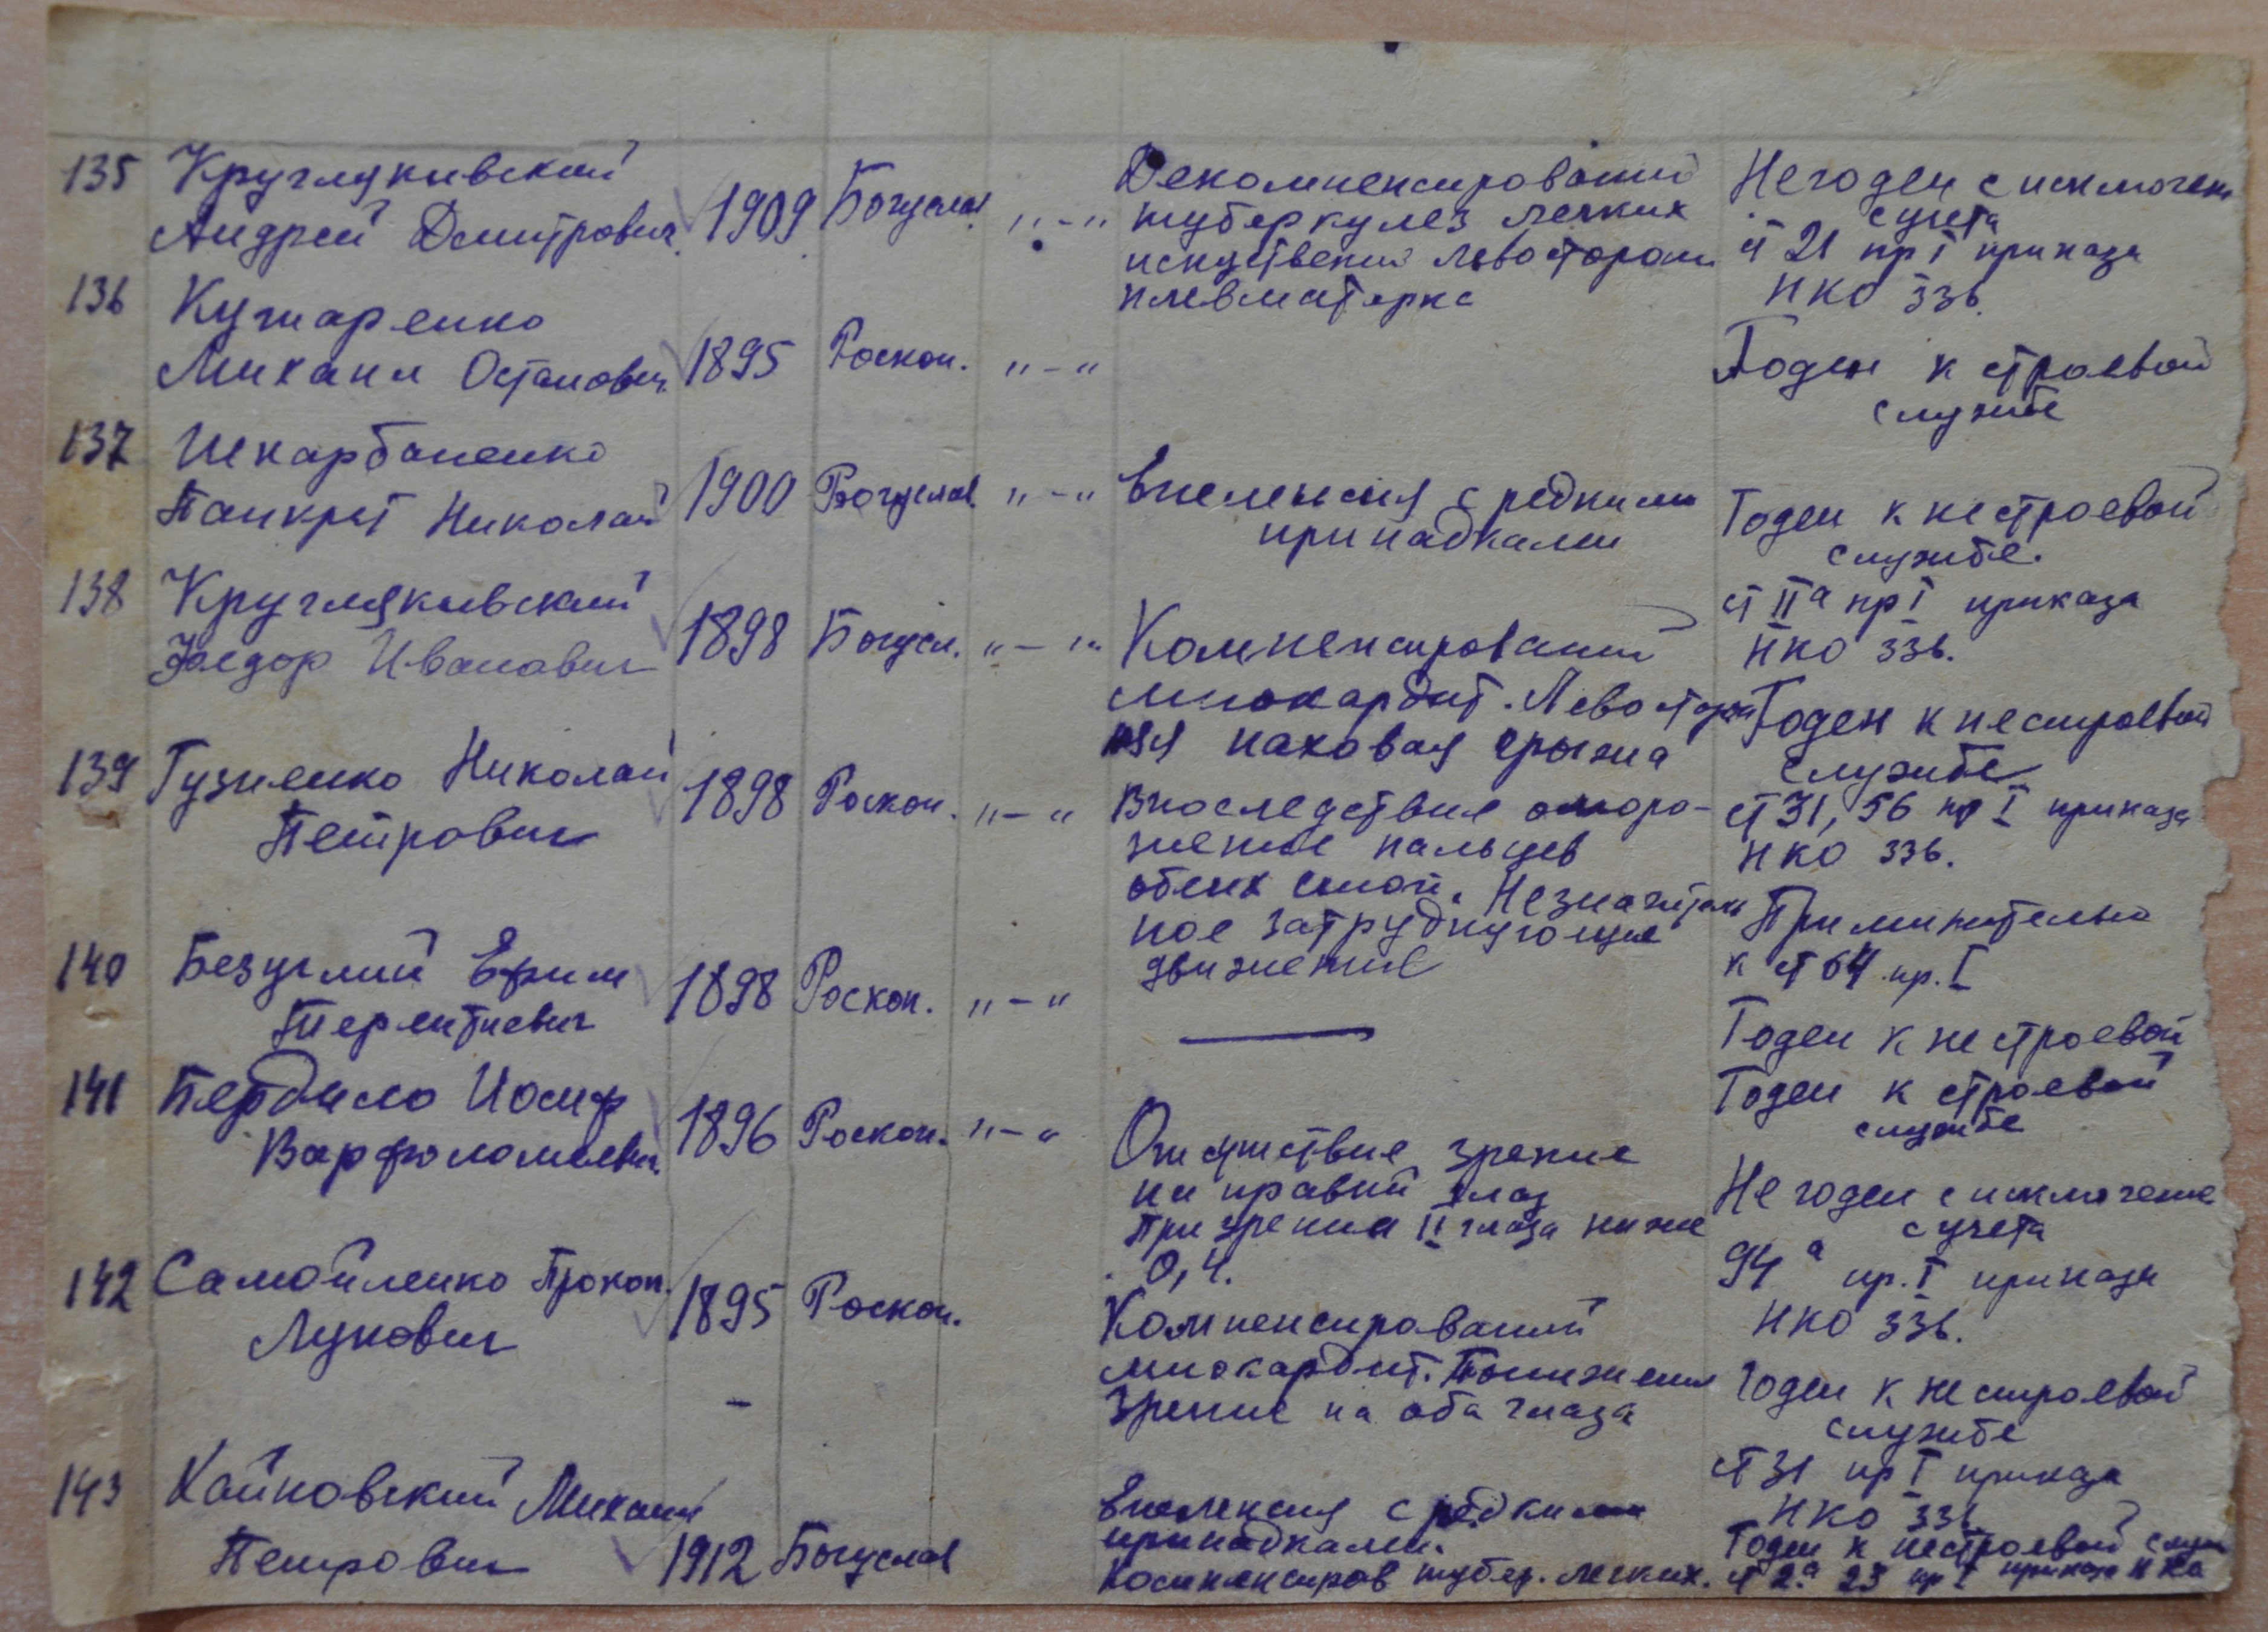 135 Кругляковский
Андрей Дмитрович 1909 Богуслав „ – „
Декомпенсированый
туберкулез легких
искуственый левосторон
пневматеркс
Негоден с исключен
с учета
ст 21 пр I приказа
НКО 336.
136 Кушаренко
Михаил Остапович 1895 Роскоп. „ – „
Годен к строевой
службе
137 Шкарбаненко
Панкрат Николай 1900 Богуслав „ – „
Епелепсия с редкими
припадками
Годен к нестроевой
службе.
ст IIа пр I приказа
НКО 336.
138 Кругляковский
Федор Иванович 1898 Богусл. „ – „
Компенсированый
миокардит. Левосторон
няя паховая грыжа
Годен к нестроевой
службе
ст 31, 56 пр I приказа
НКО 336.
139 Гузненко Николай
Петрович 1898 Роскоп. „ – „
Впоследствие отморо-
жение пальцев
обеих стоп. Незначитель
ное затрудняющие
движение
Применительно
к ст 64 пр. I
Годен к нестроевой
140 Безуглий Ефим
Терентиевич 1898 Роскоп. „ – „
Годен к строевой
службе
141 Пердило Иосиф
Варфоломеевич 1896 Роскоп. „ – „
Отсуствие зрение
на правий глаз
При зрении II глаза ниже
0,4.
Не годен с исключение
с учета
94 а пр. I приказа
НКО 336.
142 Самойленко Прокоп.
Лукович 1895 Роскоп.
Компенсированый
миокардит. Понижения
зрение на оба глаза
Годен к нестроевой
службе
ст 31 пр I приказа
НКО 336
143 Кайновский Михаил
Петрович 1912 Богуслав
Епелепсия с редкими
припадками.
Компенсиров тубер. легких.
Годен к нестроевой служ
ст 2а 23 пр I приказа НКО